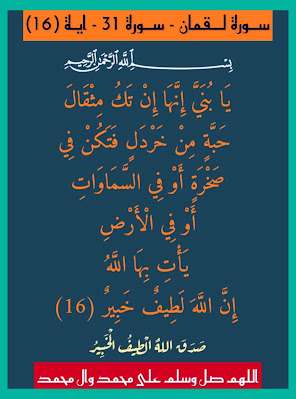 سورة لقمان - سورة 31 - اية (16)
بِسْمِ اللَّهِ الرَّحْمَٰنِ الرَّحِيمِ
يَا بُنَيَّ إِنَّهَا إِنْ تَكُ مِثْقَالَ
حَبَّةٍ مِنْ خَرْدَلٍ فَتَكُنْ فِي
صَخْرَةٍ أَوْ فِي السَّمَاوَاتِ
أَوْ فِي الْأَرْضِ
يَأْتِ بِهَا اللَّهُ
إِنَّ اللَّهَ لَطِيفٌ خَبِيرٌ (16)
صَدَقَ اللهُ الْطِيفُ الْخَبِيرُ
اللهم صل وسلم على محمد وال محمد